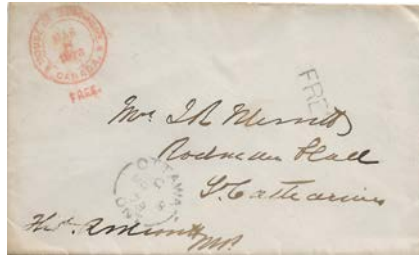 HOUSE OF COMMONS
CANADA
FREE
FREE
Mrs J R Merritt
Rodman Hall
St. Catharines
OTTAWA
ONT
Merritt
MP.